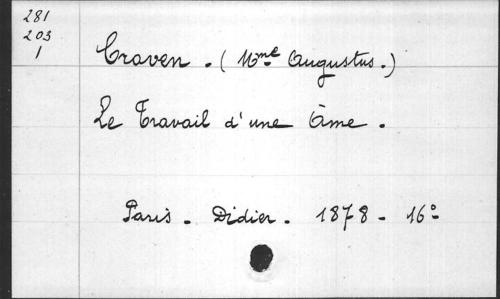 281
203
1
Craven. (Mme Augustus.)
Le Travail d'une Âme.
Paris. Didier. 1878. 16º